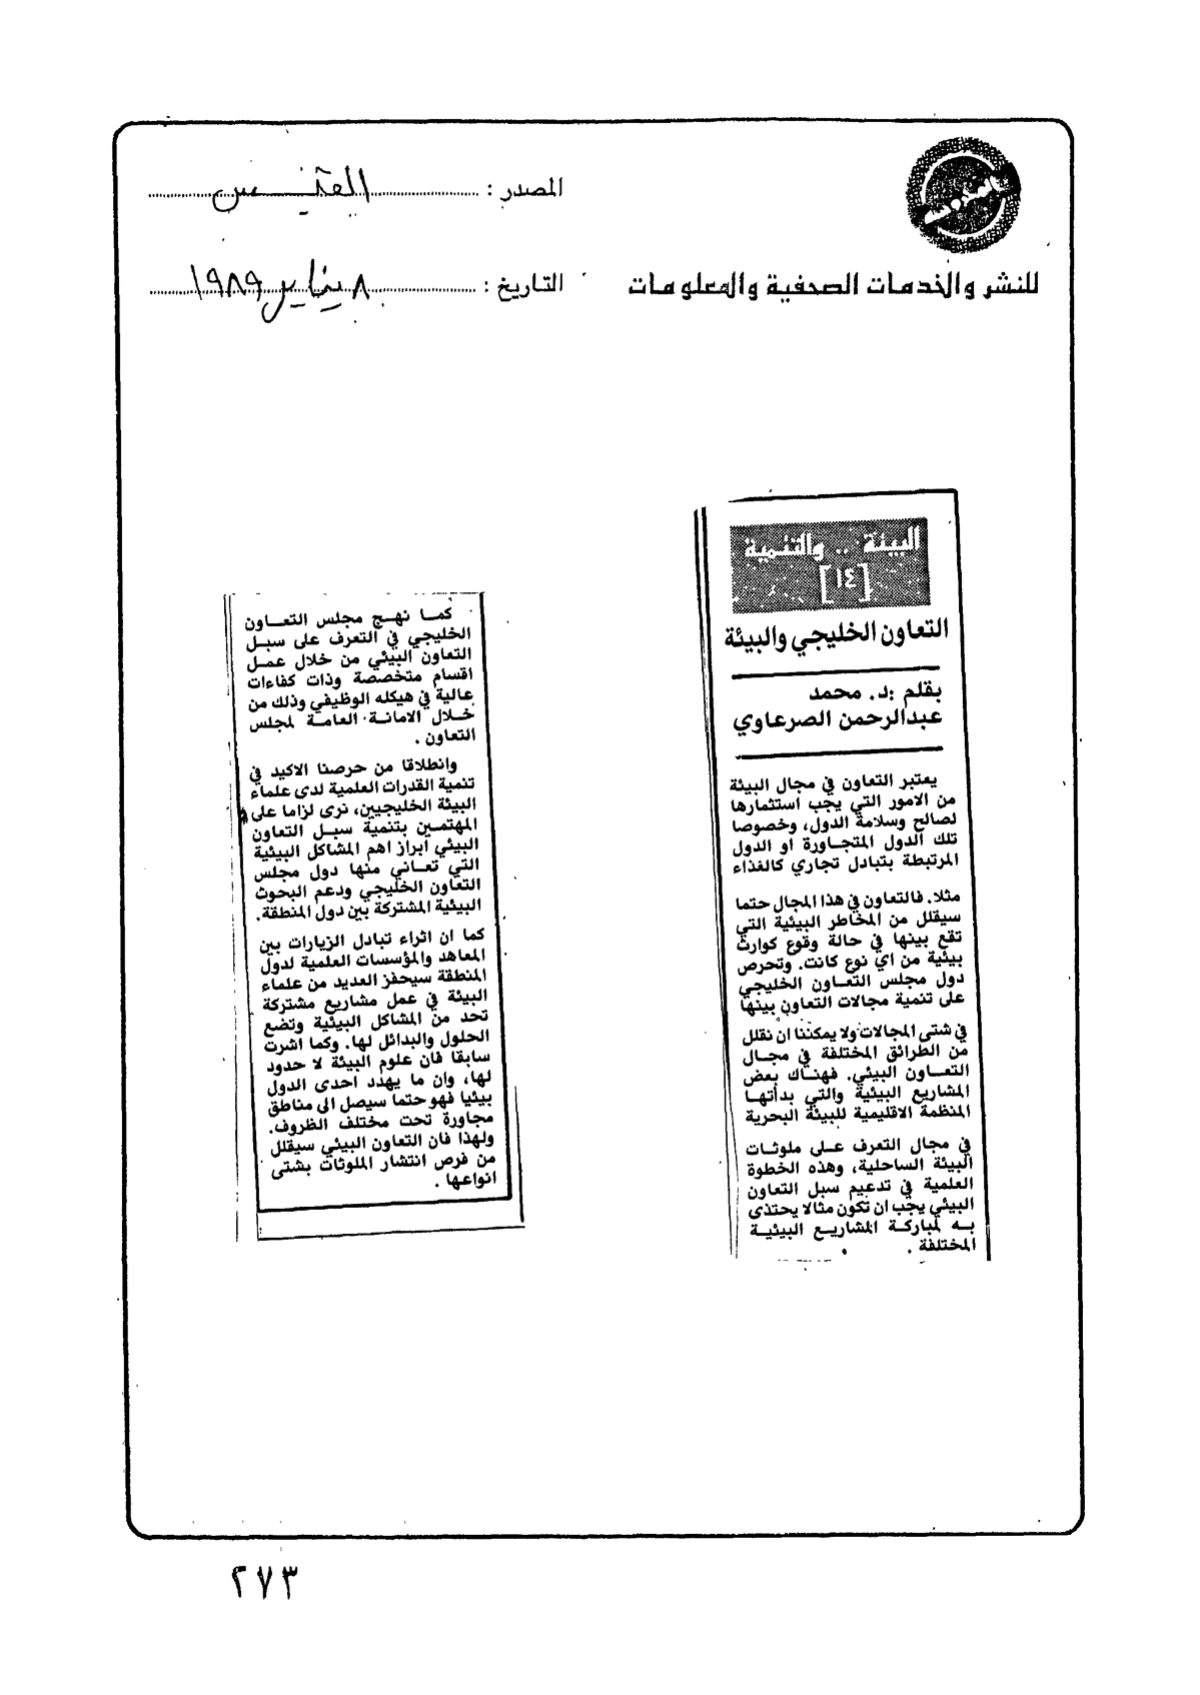 المصدر : القبس
للنشر والخدمات الصحفية والمعلومات
التاريخ : ٨ يناير ١٩٨٩
البيئة .. والتنمية
[١٤]
التعاون الخليجي والبيئة
بقلم :د. محمد
عبدالرحمن الصرعاوي
يعتبر التعاون في مجال البيئة
من الامور التي يجب استثمارها
لصالح وسلامة الدول، وخصوصا
تلك الدول المتجاورة او الدول
المرتبطة بتبادل تجاري كالغذاء
مثلا. فالتعاون في هذا المجال حتما
سيقلل من المخاطر البيئية التي
تقع بينها في حالة وقوع كوارث
بيئية من اي نوع كانت. وتحرص
دول مجلس التعاون الخليجي
على تنمية مجالات التعاون بينها
في شتى المجالات ولا يمكننا ان نقلل
من الطرائق المختلفة في مجال
التعاون البيئي. فهناك بعض
المشاريع البيئية والتي بدأتها
المنظمة الاقليمية للبيئة البحرية
في مجال التعرف على ملوثات
البيئة الساحلية، وهذه الخطوة
العلمية في تدعيم سبل التعاون
البيئي يجب ان تكون مثالا يحتذى
به لمباركة المشاريع البيئية
المختلفة .
كما نهج مجلس التعاون
الخليجي في التعرف على سبل
التعاون البيئي من خلال عمل
اقسام متخصصة وذات كفاءات
عالية في هيكله الوظيفي وذلك من
خلال الامانة العامة لمجلس
التعاون .
وانطلاقا من حرصنا الاكيد في
تنمية القدرات العلمية لدى علماء
البيئة الخليجيين، نرى لزاما على
المهتمين بتنمية سبل التعاون
البيئي ابراز اهم المشاكل البيئية
التي تعاني منها دول مجلس
التعاون الخليجي ودعم البحوث
البيئية المشتركة بين دول المنطقة.
كما ان اثراء تبادل الزيارات بين
المعاهد والمؤسسات العلمية لدول
المنطقة سيحفز العديد من علماء
البيئة في عمل مشاريع مشتركة
تحد من المشاكل البيئية وتضع
الحلول والبدائل لها. وكما اشرت
سابقا فان علوم البيئة لا حدود
لها، وان ما يهدد احدى الدول
بيئيا فهو حتما سيصل الى مناطق
مجاورة تحت مختلف الظروف.
ولهذا فان التعاون البيئي سيقلل
من فرص انتشار الملوثات بشتى
انواعها .
٢٧٣